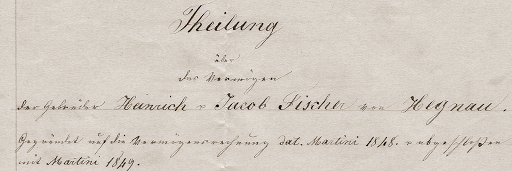 Theilung
über
das Vermögen
der Gebrüder Heinrich & Jacob Fischer von Hegnau.
Gegründet auf die Vermögensrechnung dat. Martini 1848. & abgeschloßen
mit Martini 1849.